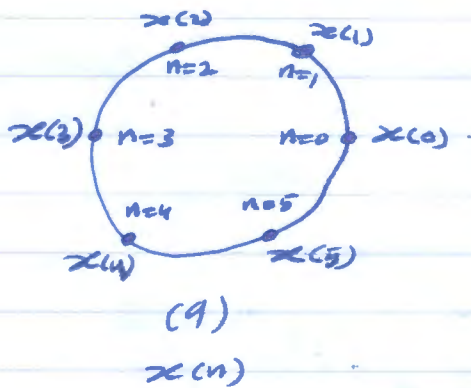 x(2) x(1)
n=2 n=1
x(3) n=3 n=0 x(0)
n=4 n=5
x(4) x(5)
(a)
x(n)